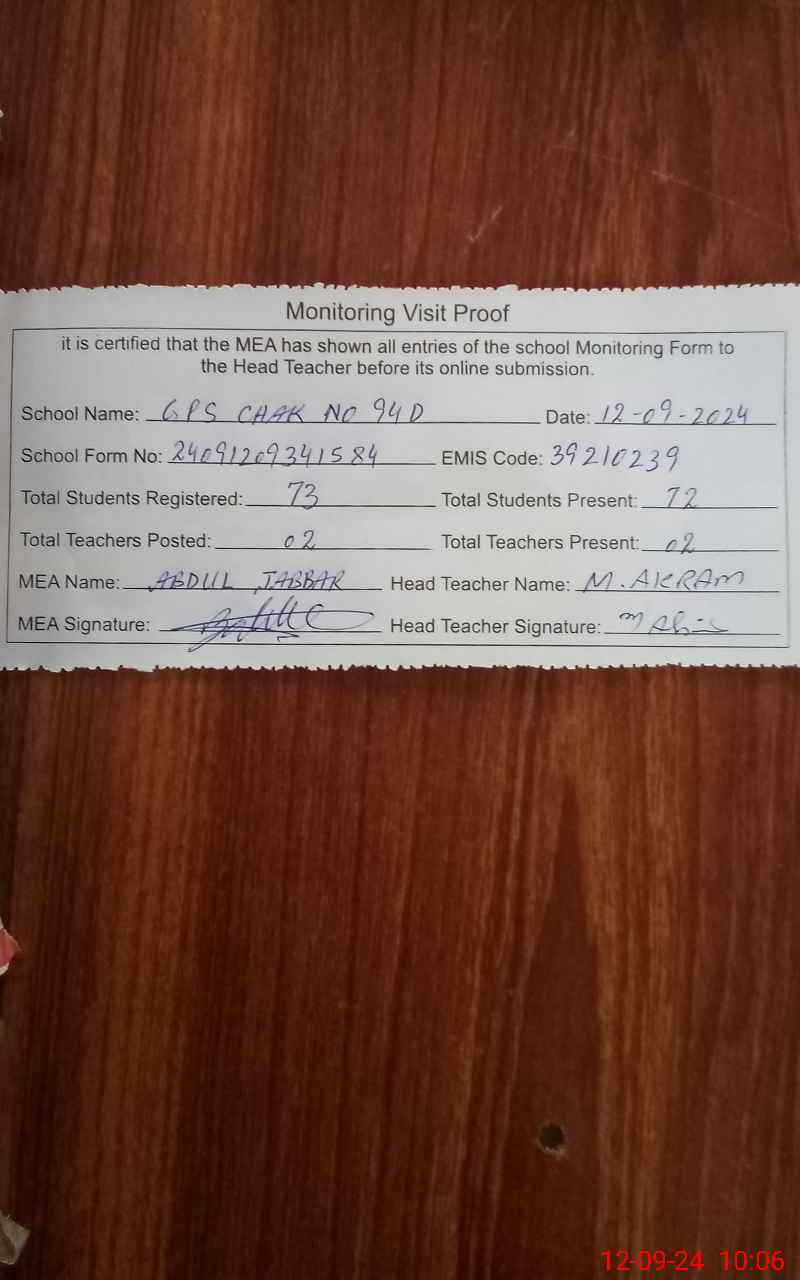 Monitoring Visit Proof
it is certified that the MEA has shown all entries of the school Monitoring Form to
the Head Teacher before its online submission.
School Name: GPS CHAK NO 94D Date: 12-09-2024
School Form No: 24091209341584 EMIS Code: 39210239
Total Students Registered: 73 Total Students Present: 72
Total Teachers Posted: 02 Total Teachers Present: 02
MEA Name: ABDUL JABBAR Head Teacher Name: M. AKRAM
MEA Signature: Head Teacher Signature:
12-09-24 10:06